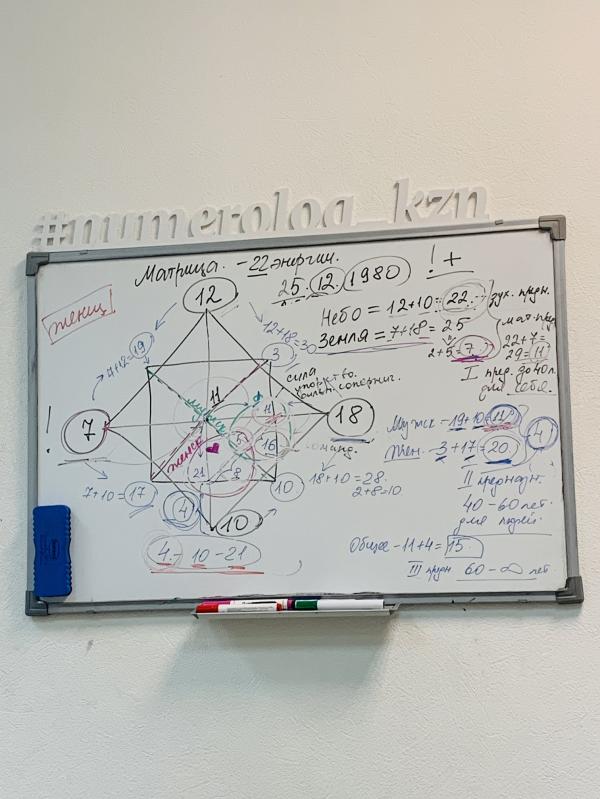 #numerolog_kzn
Матрица. – 22 энергии.
25. 12. 1980
! +
женщ
12
Небо = 12+10 = 22
Земля = 7+18 = 25
2+5 = 7
22+7=
29=11
I пред. до 40 л.
для себя.
7+12=19
12+18=30
3
11
сила
упорство.
!
7
18
11
5
16
мужск
женск
21
8
10
7+10=17
4
10
18+10=28.
2+8=10
4 – 10 – 21
Мужск – 19+10=11
Жен. – 3+17=20.
4
II предназн.
40 – 60 лет.
для людей.
Общее – 11+4=15
III предн 60 – ∞ лет